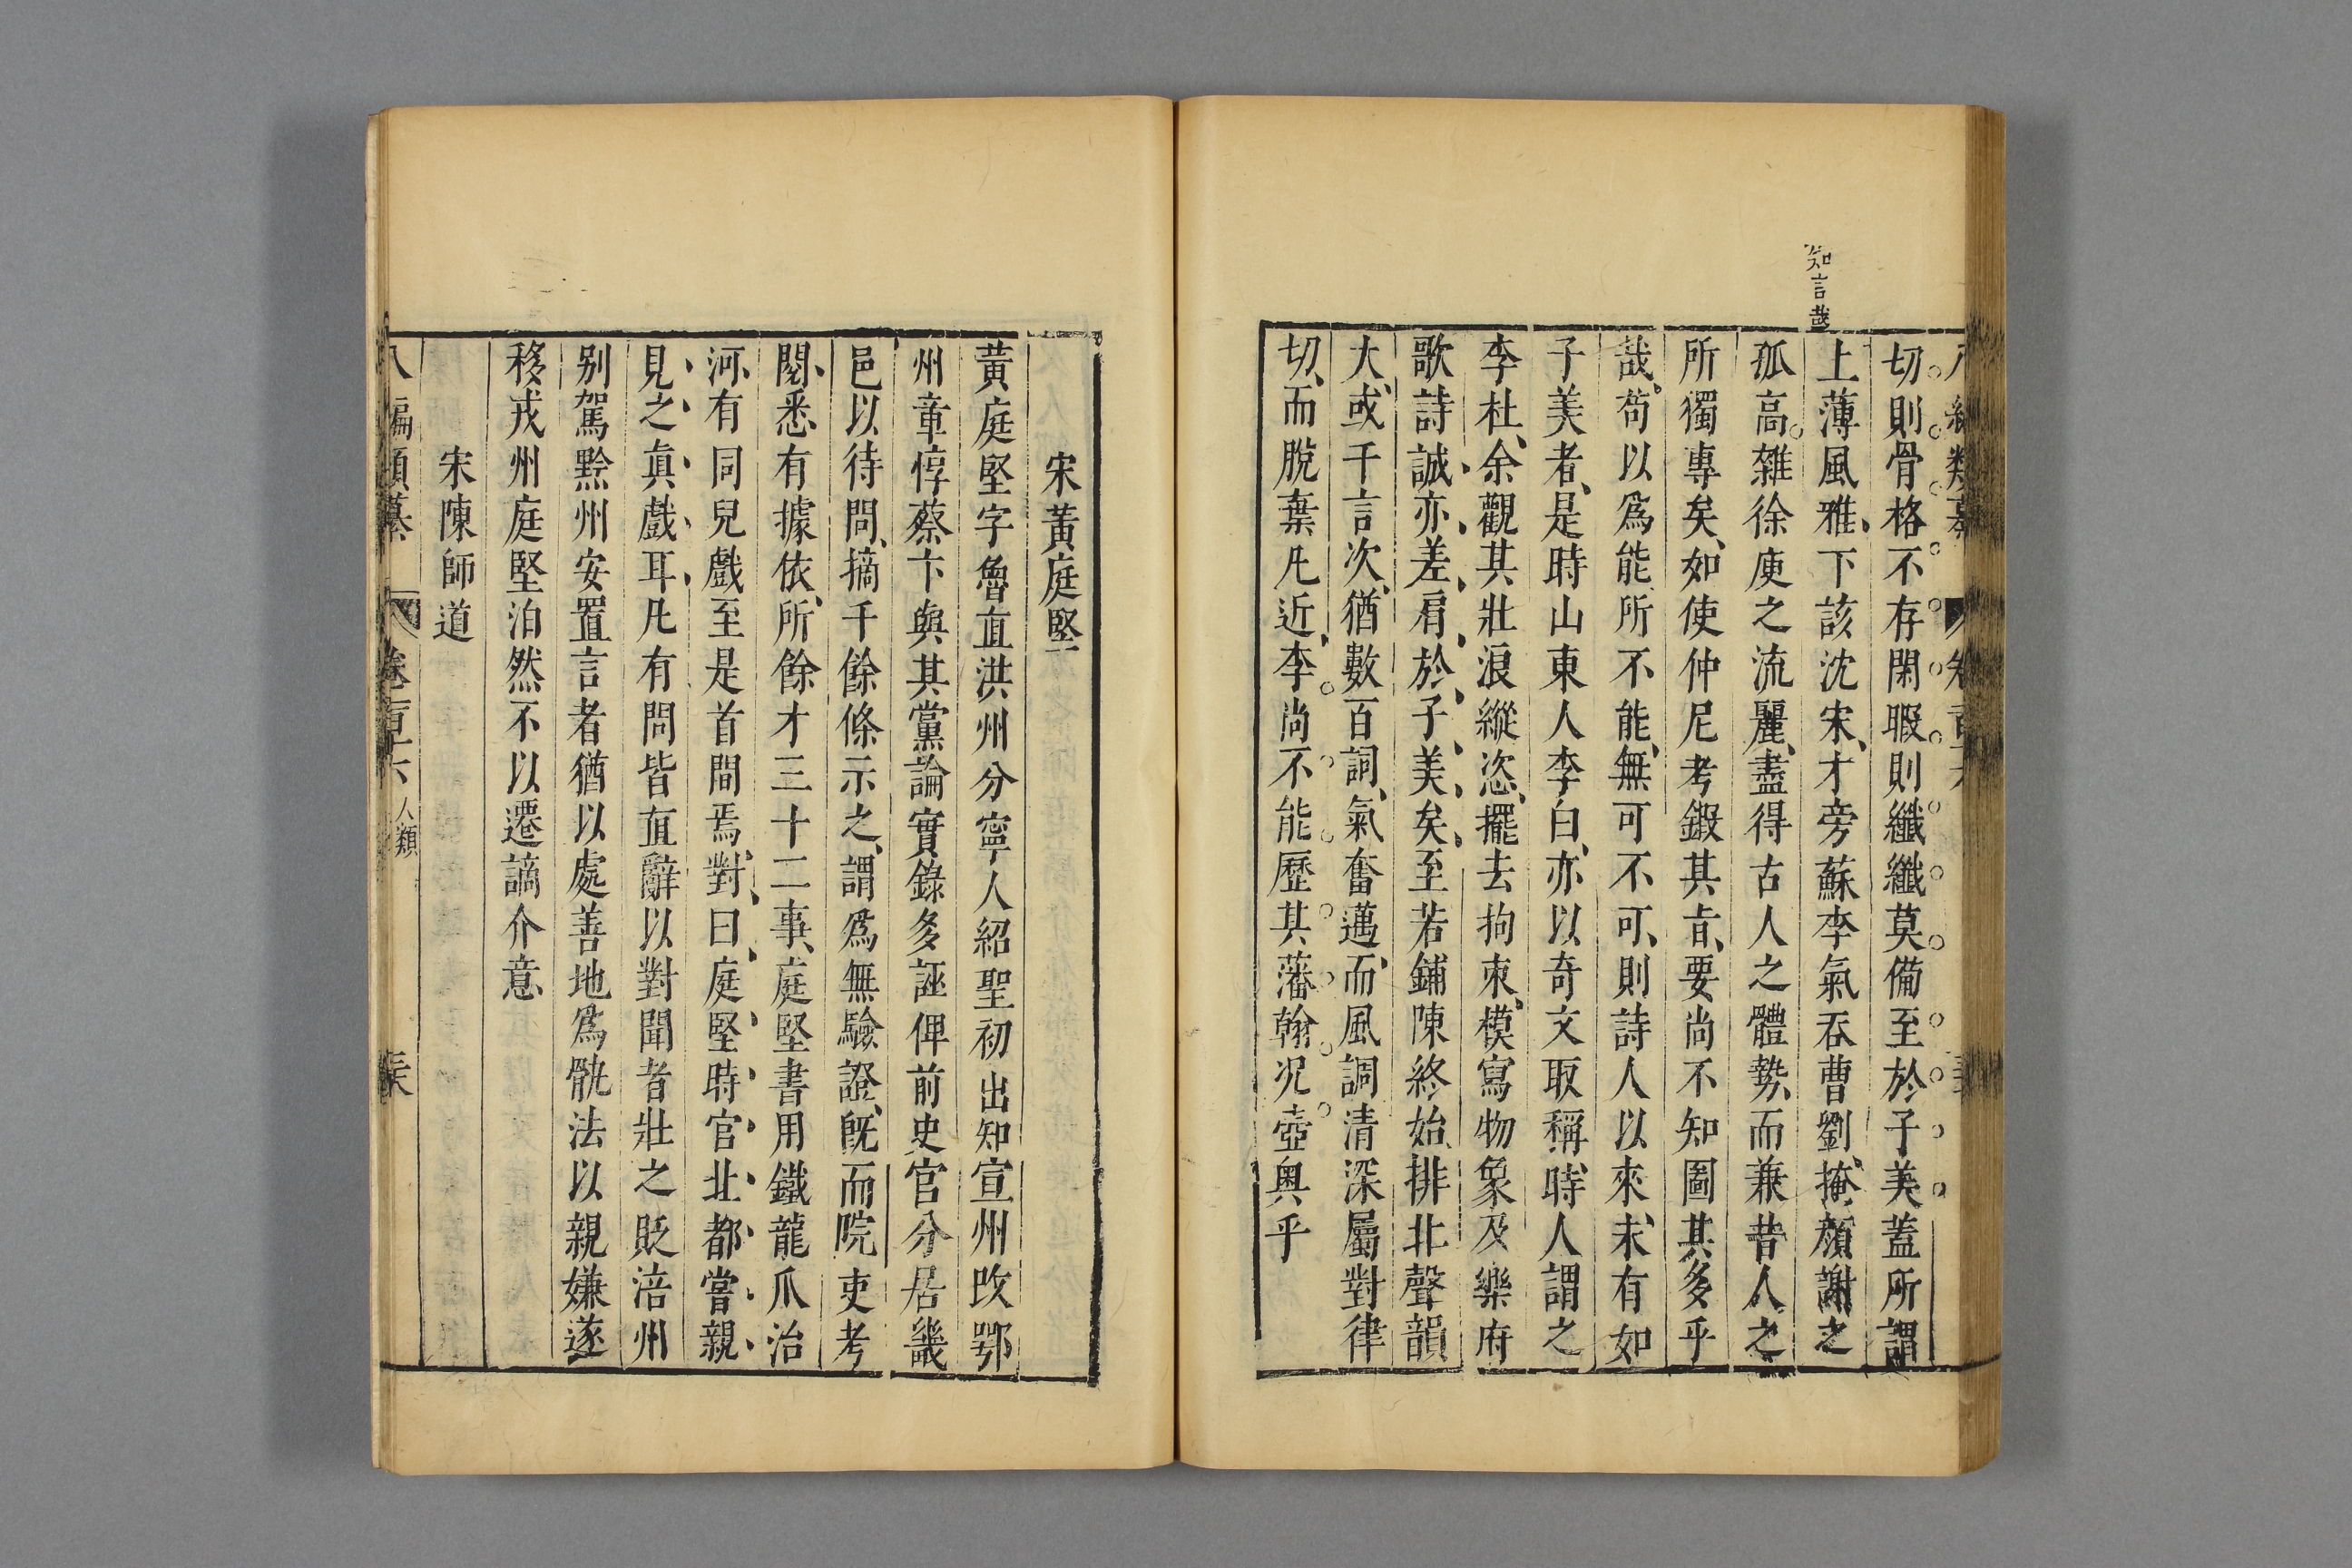 知言哉
切則骨格不存閑暇則纖纖莫備至於子美蓋所謂
上薄風雅下該沈宋才旁蘇李氣吞曹劉掩顏謝之
孤高雜徐庾之流麗盡得古人之體勢而兼昔人之
所獨專矣如使仲尼考鍛其㫖要尚不知圖其多乎
哉苟以爲能所不能無可不可則詩人以來未有如
子美者是時山東人李白亦以奇文取稱時人謂之
李杜余觀其壯浪縱恣擺去拘束模寫物象及樂府
歌詩誠亦差肩於子美矣至若鋪陳終始排比聲韻
大或千言次猶數百詞氣奮邁而風調清深屬對律
切而脫棄凡近李尚不能歷其藩翰况壺奧乎
宋黃庭堅
黃庭堅字魯直洪州分寧人紹聖初出知宣州改鄂
州章惇蔡卞與其黨論實錄多誣俾前史官分居畿
邑以待問摘千餘條示之謂爲無驗證旣而院吏考
閱悉有據依所餘才三十二事庭堅書用鐵龍爪治
河有同兒戲至是首問焉對曰庭堅時官北都嘗親
見之眞戲耳凡有問皆直辭以對聞者壯之貶涪州
別駕黔州安置言者猶以處善地爲骫法以親嫌遂
移戎州庭堅泊然不以遷謫介意
宋陳師道
八編類纂 卷百六 人類